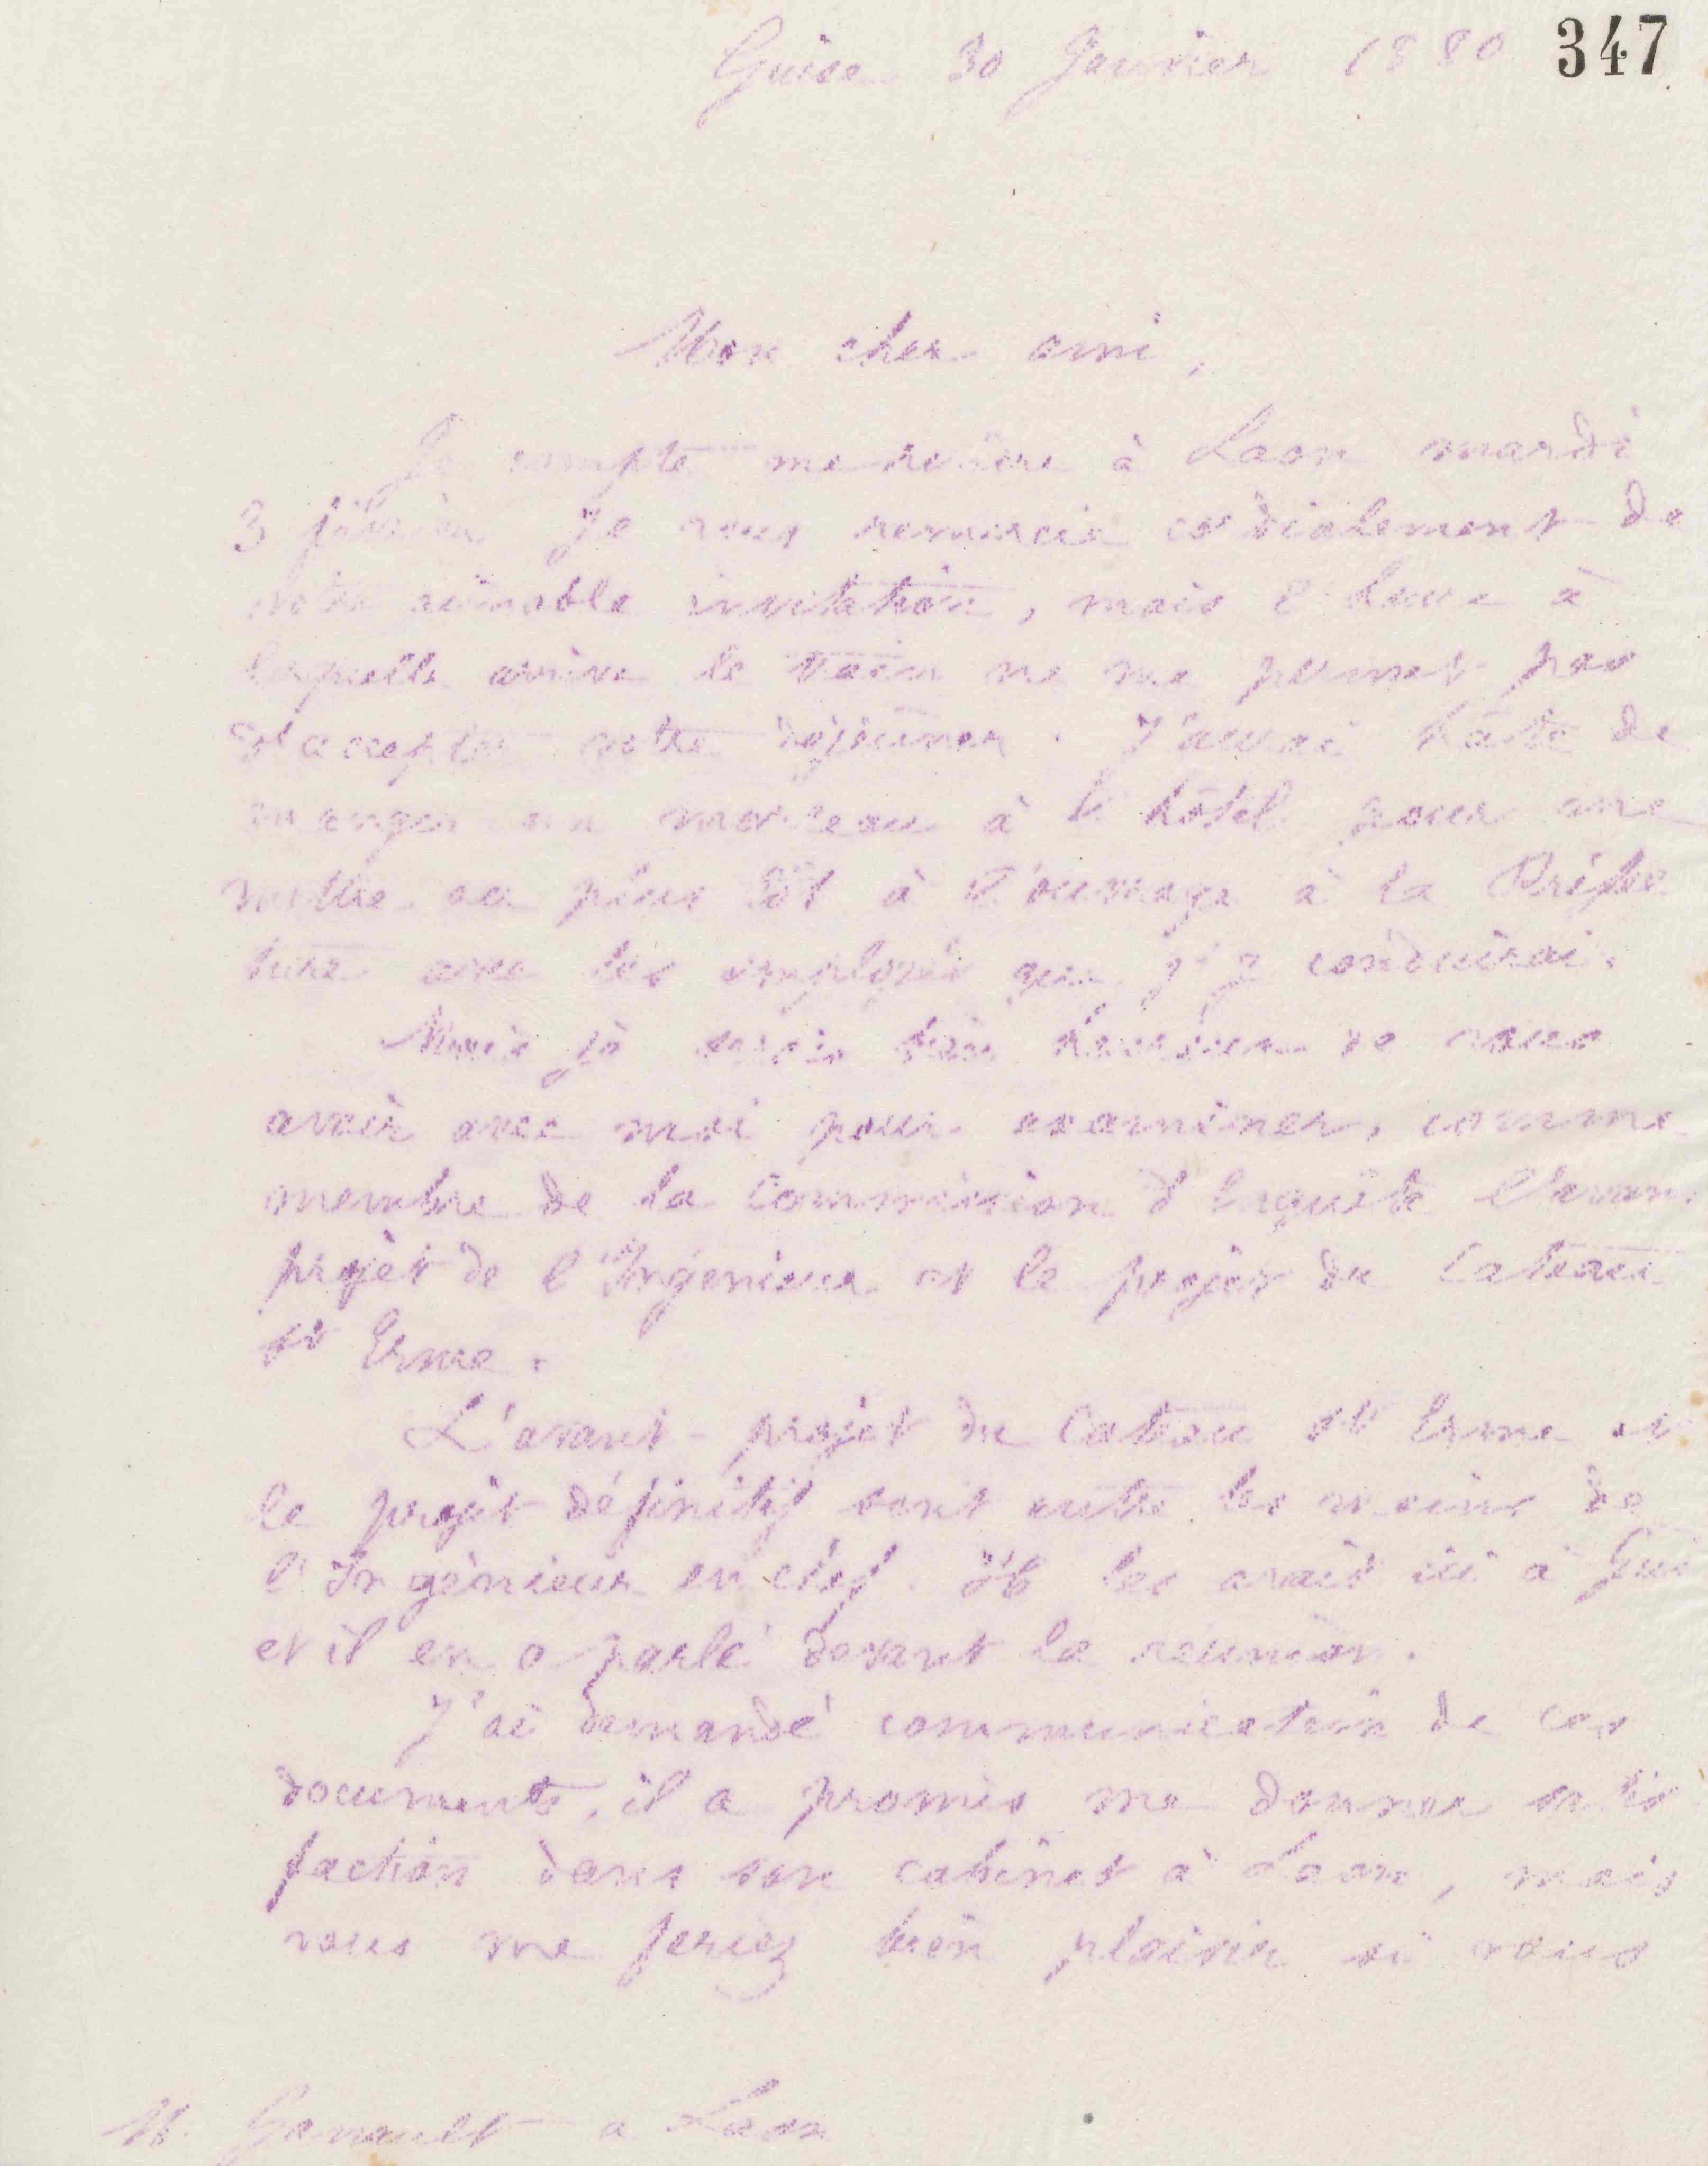 Guise 30 Janvier 1880 347
Mon cher ami,
Je compte me rendre à Laon mardi
3 février Je vous remercie cordialement de
votre aimable invitation, mais l'heure à
laquelle arrive le train ne me permet pas
d'accepter votre déjeuner. J'aurai hâte de
manger un morceau à l'hôtel pour me
mettre au plus tôt à l'ouvrage à la Préfec
ture avec les employés que j'y conduirai.
Mais je serais bien heureux de vous
avoir avec moi pour examiner, comme
membre de la Commission d'Enquête l'avant
projet de l'Ingénieur et le projet du Cateau
St Erme.
L'avant-projet du Cateau St Erme et
le projet définitif sont entre les mains de
l'Ingénieur en chef. Il les avait ici à Gui
et il en a parlé devant la réunion.
J'ai demandé communication de ces
documents, il a promis me donner satis
faction dans son cabinet à Laon, mais
vous me feriez bien plaisir si vous
M. Ganault a Laon